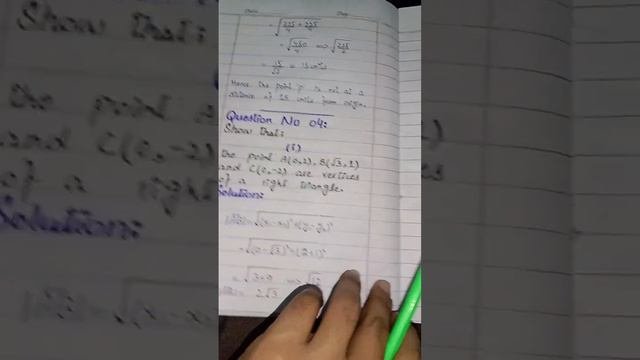 Date
Day
= √225/4 + 225/4
= √450/4 ⟹ √225/2
= 15/√2 =
Hence the point P is not at a
distance of 15 units from origin.
Question No 04:
Show that:
(i)
the point A(0,2), B(√3,1)
and C(0,-2) are vertices
of a right triangle.
Solution:
= √(0-√3)²+(2+1)²
= √3+9 ⟹ √12
= 2√3